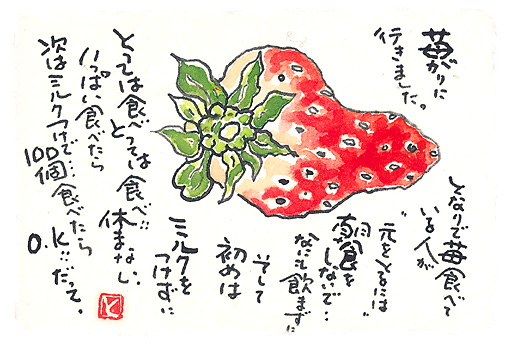 苺がりに
行きました。
となりで苺食べて
いる人が
"元をとるには
朝食をしないで‥
なにも飲まずに
そして
初めは
ミルクを
つけずに
とっては食べ
とっては食べ‥
休まない。
いっぱい食べたら
次はミルクつけて‥
100個食べたら
O.K‥だって。
と